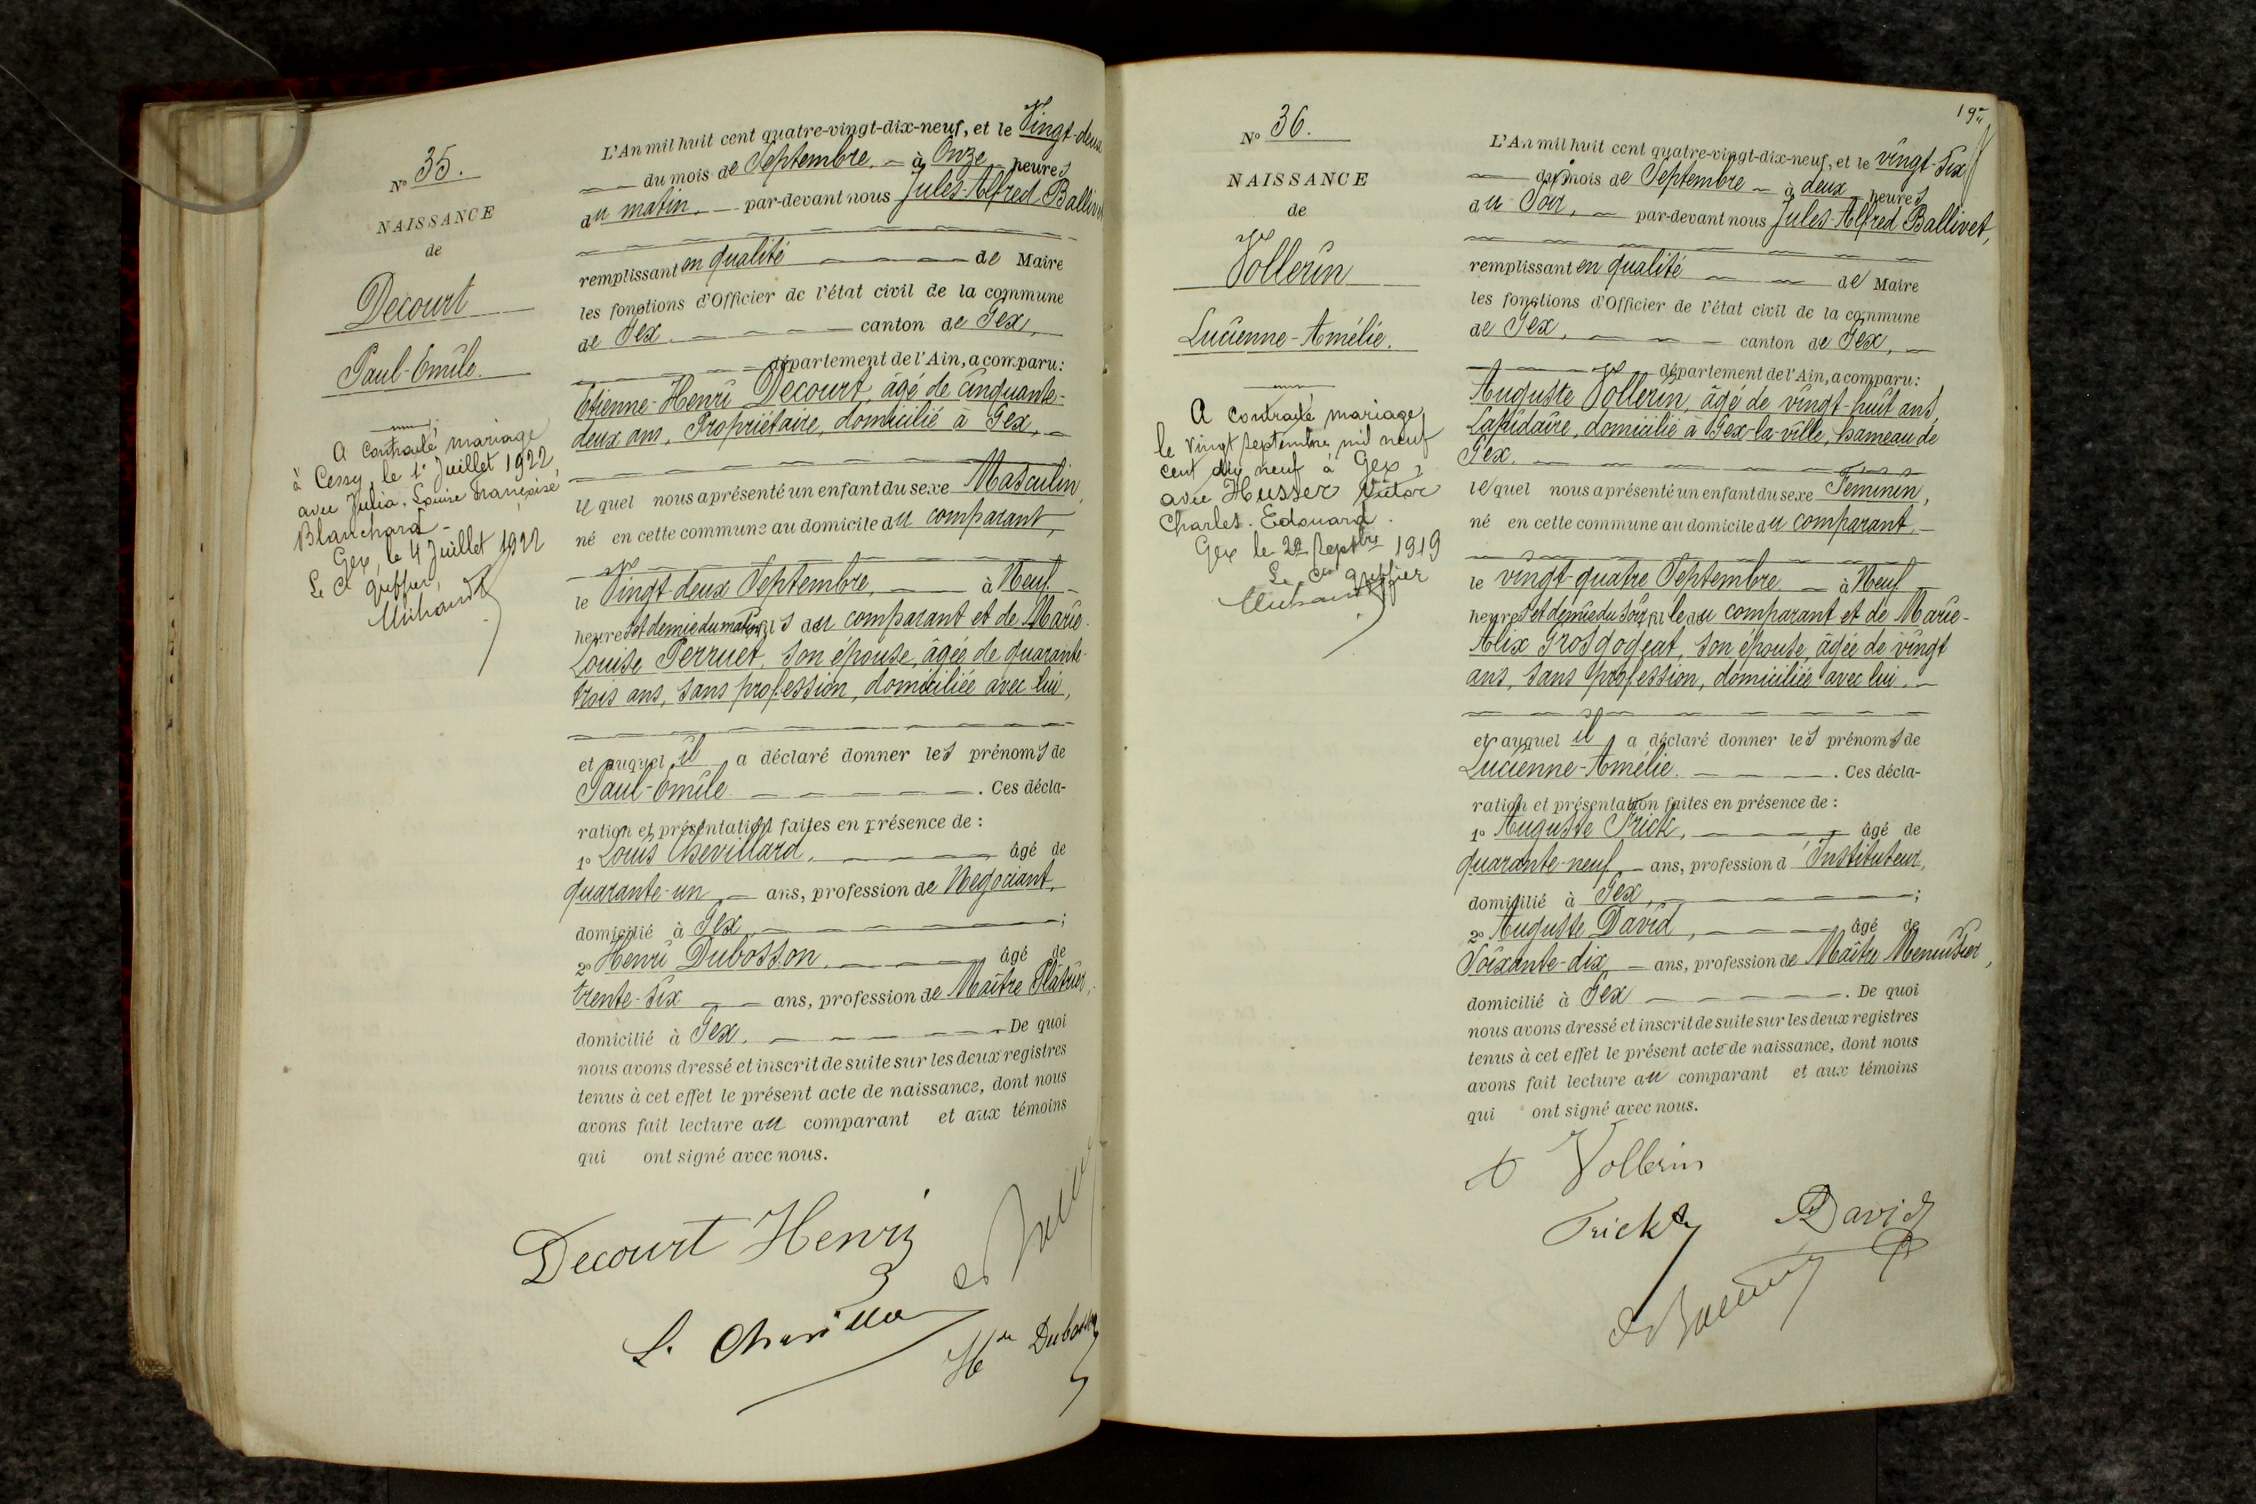 N° 35.
NAISSANCE
de
Decourt
Paul-Emile.
A contracté mariage
à Cessy, le 1er Juillet 1922,
avec Julia, Louise Françoise,
Blanchard -
Gex, le 4 Juillet 1922
Le Cis greffier,
Michaud
L'An mil huit cent quatre-vingt-dix-neuf, et le Vingt-deux
du mois de Septembre, à Onze heures
du matin, par-devant nous Jules-Alfred Ballivet
remplissant en qualité de Maire
les fonctions d'Officier de l'état civil de la commune
de Gex, canton de Gex,
département de l'Ain, a comparu:
Etienne-Henri Decourt, âgé de cinquante-
deux ans, Propriétaire, domicilié à Gex,
lequel nous a présenté un enfant du sexe Masculin,
né en cette commune au domicile du comparant,
le Vingt deux Septembre, à Neuf
heures et demie du matin, fils du comparant et de Marie-
Louise Perruet, son épouse, âgée de quarante-
trois ans, sans profession, domiciliée avec lui,
et auquel il a déclaré donner les prénoms de
Paul-Emile. Ces décla-
ration et présentation faites en présence de :
1° Louis Chevillard, âgé de
quarante-un ans, profession de Négociant,
domicilié à Gex ;
2° Henri Dubosson, âgé de
trente-six ans, profession de Maître Plâtrier,
domicilié à Gex. De quoi
nous avons dressé et inscrit de suite sur les deux registres
tenus à cet effet le présent acte de naissance, dont nous
avons fait lecture au comparant et aux témoins
qui ont signé avec nous.
Decourt Henri
L. Chevilla
Hri Dubosson
19
N° 36.
NAISSANCE
de
Vollerin
Lucienne-Amélie.
A contracté mariage,
le vingt septembre mil neuf
cent dix neuf à Gex,
avec Husser Victor
Charles-Edouard.
Gex le 22 septbre 1919
Le Cis greffier
Michaud
L'An mil huit cent quatre-vingt-dix-neuf, et le vingt-six
du mois de Septembre à deux heures
du Soir, par-devant nous Jules-Alfred Ballivet,
remplissant en qualité de Maire
les fonctions d'Officier de l'état civil de la commune
de Gex, canton de Gex,
département de l'Ain, a comparu:
Auguste Vollerin, âgé de vingt-huit ans,
Lapidaire, domicilié à Gex-la-ville, hameau de
Gex.
lequel nous a présenté un enfant du sexe Féminin,
né en cette commune au domicile du comparant,
le vingt-quatre Septembre à Neuf
heures et demie du soir, fille du comparant et de Marie-
Alix Grosgogeat, son épouse, âgée de vingt
ans, sans profession, domiciliée avec lui.
et auquel il a déclaré donner les prénoms de
Lucienne-Amélie. Ces décla-
ration et présentation faites en présence de :
1° Auguste Frick, âgé de
quarante-neuf ans, profession d'Instituteur,
domicilié à Gex, ;
2° Auguste David, âgé de
Soixante-dix ans, profession de Maître Menuisier,
domicilié à Gex. De quoi
nous avons dressé et inscrit de suite sur les deux registres
tenus à cet effet le présent acte de naissance, dont nous
avons fait lecture au comparant et aux témoins
qui ont signé avec nous.
A Vollerin
Frick David